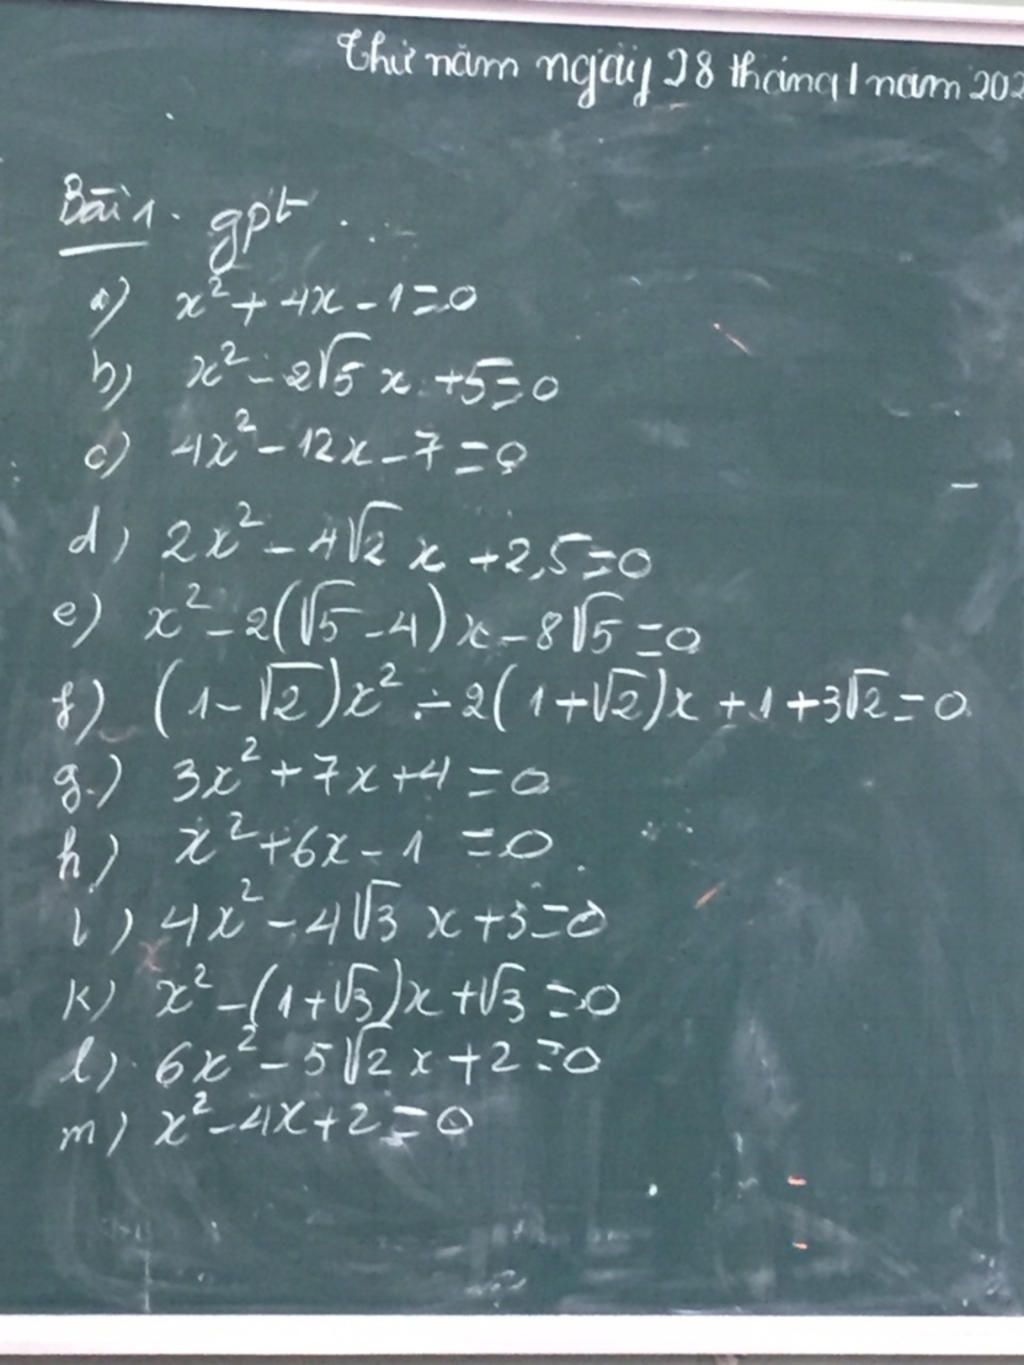 Thứ năm ngày 28 tháng 1 năm 202
Bài 1. gpt
a) x² + 4x - 1 = 0
b) x² - 2√5 x + 5 = 0
c) 4x² - 12x - 7 = 0
d) 2x² - 4√2 x + 2,5 = 0
e) x² - 2(√5 - 4)x - 8√5 = 0
f) (1 - √2)x² - 2(1 + √2)x + 1 + 3√2 = 0
g) 3x² + 7x + 4 = 0
h) x² + 6x - 1 = 0
i) 4x² - 4√3 x + 3 = 0
k) x² - (1 + √3)x + √3 = 0
l) 6x² - 5√2 x + 2 = 0
m) x² - 4x + 2 = 0